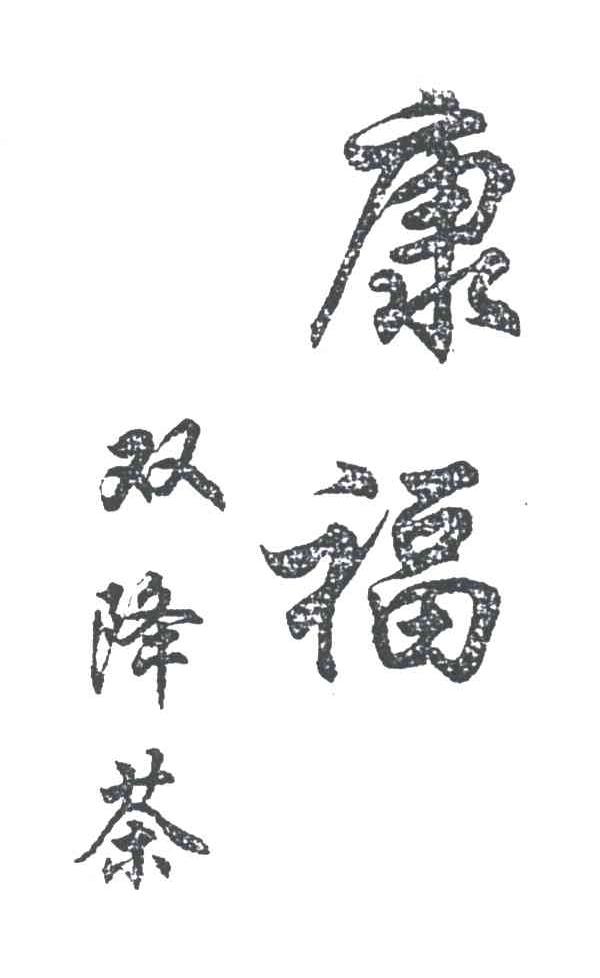 康福
双降茶